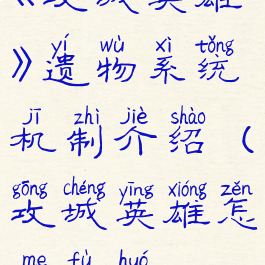 》遗物系统
yí wù xì tǒng
机制介绍（
jī zhì jiè shào
攻城英雄怎
gōng chéng yīng xióng zěn
me fù huó